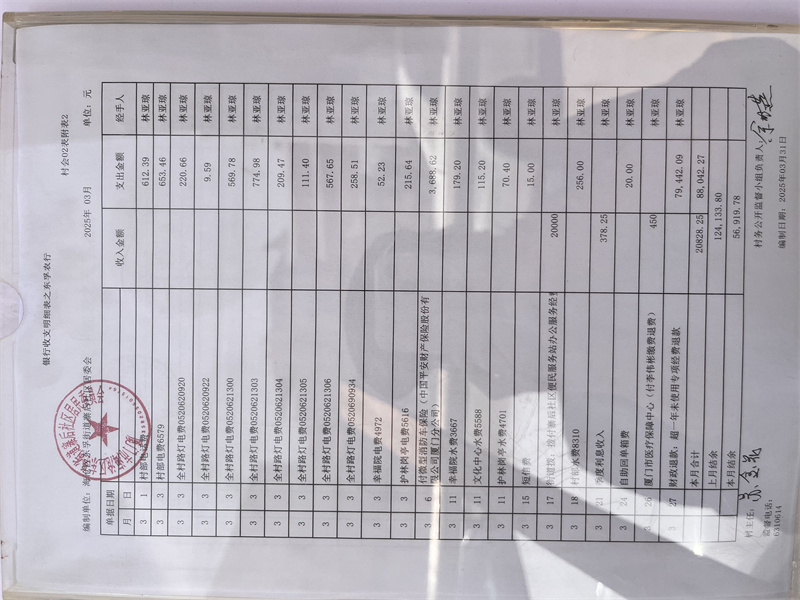 村会02表附表2
银行收支明细表之东孚农行
编制单位：海 居委会 2025年 03月 单位：元
单据日期 收入金额 支出金额 经手人
月 日
3 1 村部电话费 612.39 林亚琼
3 3 村部电费6579 653.46 林亚琼
3 3 全村路灯电费0520620920 220.66 林亚琼
3 3 全村路灯电费0520620922 9.59 林亚琼
3 3 全村路灯电费0520621300 569.78 林亚琼
3 3 全村路灯电费0520621303 774.98 林亚琼
3 3 全村路灯电费0520621304 209.47 林亚琼
3 3 全村路灯电费0520621305 111.40 林亚琼
3 3 全村路灯电费0520621306 567.65 林亚琼
3 3 全村路灯电费0520690934 258.51 林亚琼
3 3 幸福院电费4972 52.23 林亚琼
3 3 护林岗亭电费5616 215.64 林亚琼
3 6 付微型消防车保险（中国平安财产保险股份有限公司厦门分公司） 3,688.62 林亚琼
3 11 幸福院水费3667 179.20 林亚琼
3 11 文化中心水费5588 115.20 林亚琼
3 11 护林岗亭水费4701 70.40 林亚琼
3 15 短信费 15.00 林亚琼
3 17 拨付寨后社区便民服务站办公服务经 20000 林亚琼
3 18 村部水费8310 256.00 林亚琼
3 21 季度利息收入 378.25 林亚琼
3 24 自助回单箱费 20.00 林亚琼
3 26 厦门市医疗保障中心（付李伟彬缴费退费） 450 林亚琼
3 27 财政退款：超一年未使用专项经费退款 79,442.09 林亚琼
本月合计 20828.25 88,042.27
上月结余 124,133.80
本月结余 56,919.78
村主任： 村务公开监督小组负责人：
监督电话：
6310614 编制日期：2025年03月31日